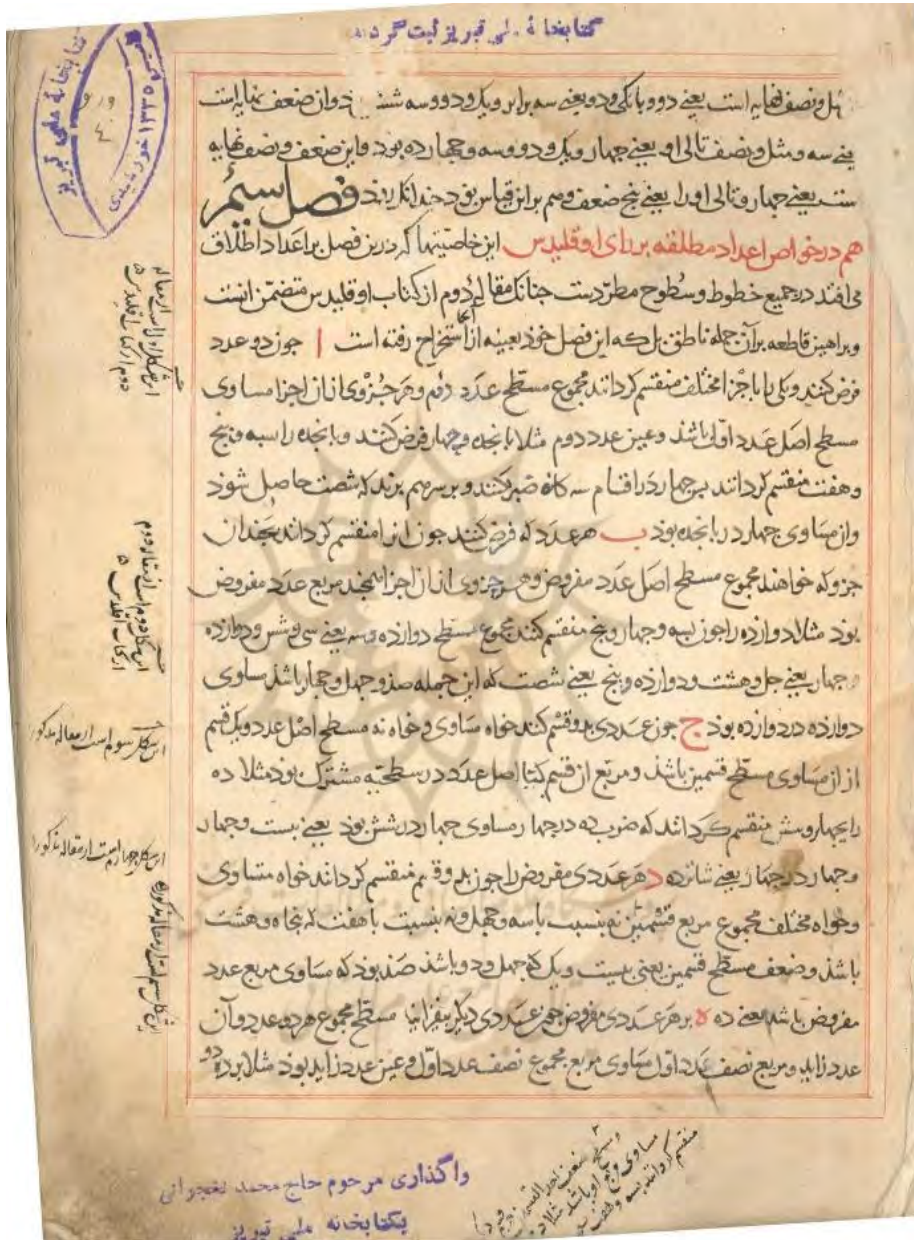 کتابخانهٔ ملی تبریز ثبت گردید
کتابخانه ملی تبریز
مثل و نصف نهایه است یعنی دو و با یکی و دو یعنی سه برابر و یک و دو و سه شش و آن ضعف نهایه است
یعنی سه و مثل و نصف تالی او یعنی چهار و یک و دو و سه و چهار ده بود و این ضعف و نصف نهایه
ست یعنی چهار و تالی او را یعنی پنج ضعف و هم برین قیاس بود چندانک روند فصل سیم
هم در خواص اعداد مطلقه بر رای اوقلیدس این خاصیتها که درین فصل بر اعداد اطلاق
می افتد در جمیع خطوط و سطوح مطردست جنانک مقالهٔ دوم از کتاب اوقلیدس متضمن آنست
و براهین قاطعه بر آن جمله ناطق بل که این فصل خود بعینه از آنجا استخراج رفته است ا جون دو عدد
فرض کنند و یکی را باجزا مختلف منقسم کردانند مجموع مسطح عدد دوم و هر جزوی ازان اجزا مساوی
مسطح اصل عدد اول باشد و عین عدد دوم مثلا بانجده و جهار فرض کنند و بانجده را بسه و بنج
و هفت منقسم کردانند بس جهار در اقسام سه کانه ضرب کنند و بر سر هم برند که شصت حاصل شود
و ان مساوی جهار در بانجده بود ب هر عدد که فرض کنند جون انرا منقسم کردانند بجندان
جزو که خواهند مجموع مسطح اصل عدد مفروض و هر جزوی ازان اجزا همجند مربع عدد مفروض
بود مثلا دوازده را جون بسه و جهار و بنج منقسم کنند مجموع مسطح دوازده و سه یعنی سی و شش و دوازده
و جهار یعنی جهل و هشت و دوازده و بنج یعنی شصت که این جمله صد و جهل و جهار باشد مساوی
دوازده در دوازده بود ج جون عددی بدو قسم کنند خواه مساوی و خواه نه مسطح اصل عدد و یک قسم
ازان مساوی مسطح قسمین باشد و مربع ان قسم کبا اصل عدد در مسطحیه مشترک بود مثلا ده
را بجهار و شش منقسم کردانند که ضرب ده در جهار مساوی جهار در شش بود یعنی بیست و جهار
و جهار در جهار یعنی شانزده د هر عددی مفروض را جون بدو قسم منقسم کردانند خواه متساوی
و خواه مختلف مجموع مربع قسمین نه بنسبت با سه و جهل و نه بنسبت با هفت که بنجاه و هشت
باشد و ضعف مسطح قسمین یعنی بیست و یک که جهل و دو باشد صد بود که مساوی مربع عدد
مفروض باشد یعنی ده ه بر هر عددی مفروض جون عددی دیکر بیفزایند مسطح مجموع هر دو عدد و آن
عدد زاید و مربع نصف عدد اول مساوی مربع مجموع نصف عدد اول و عین عدد زاید بود مثلا بر ده دو
این شکل اول است از مقاله
دوم از کتاب اقلیدس
این شکل دوم است از مقاله دوم
از کتاب اقلیدس
این شکل سوم است از مقاله مذکوره
این شکل چهارم است از مقاله مذکوره
این شکل ششم است از مقاله مذکوره
مساوی
منقسم کردانند بسه و هفت
واگذاری مرحوم حاج محمد نخجوانی
بکتابخانه ملی تبریز